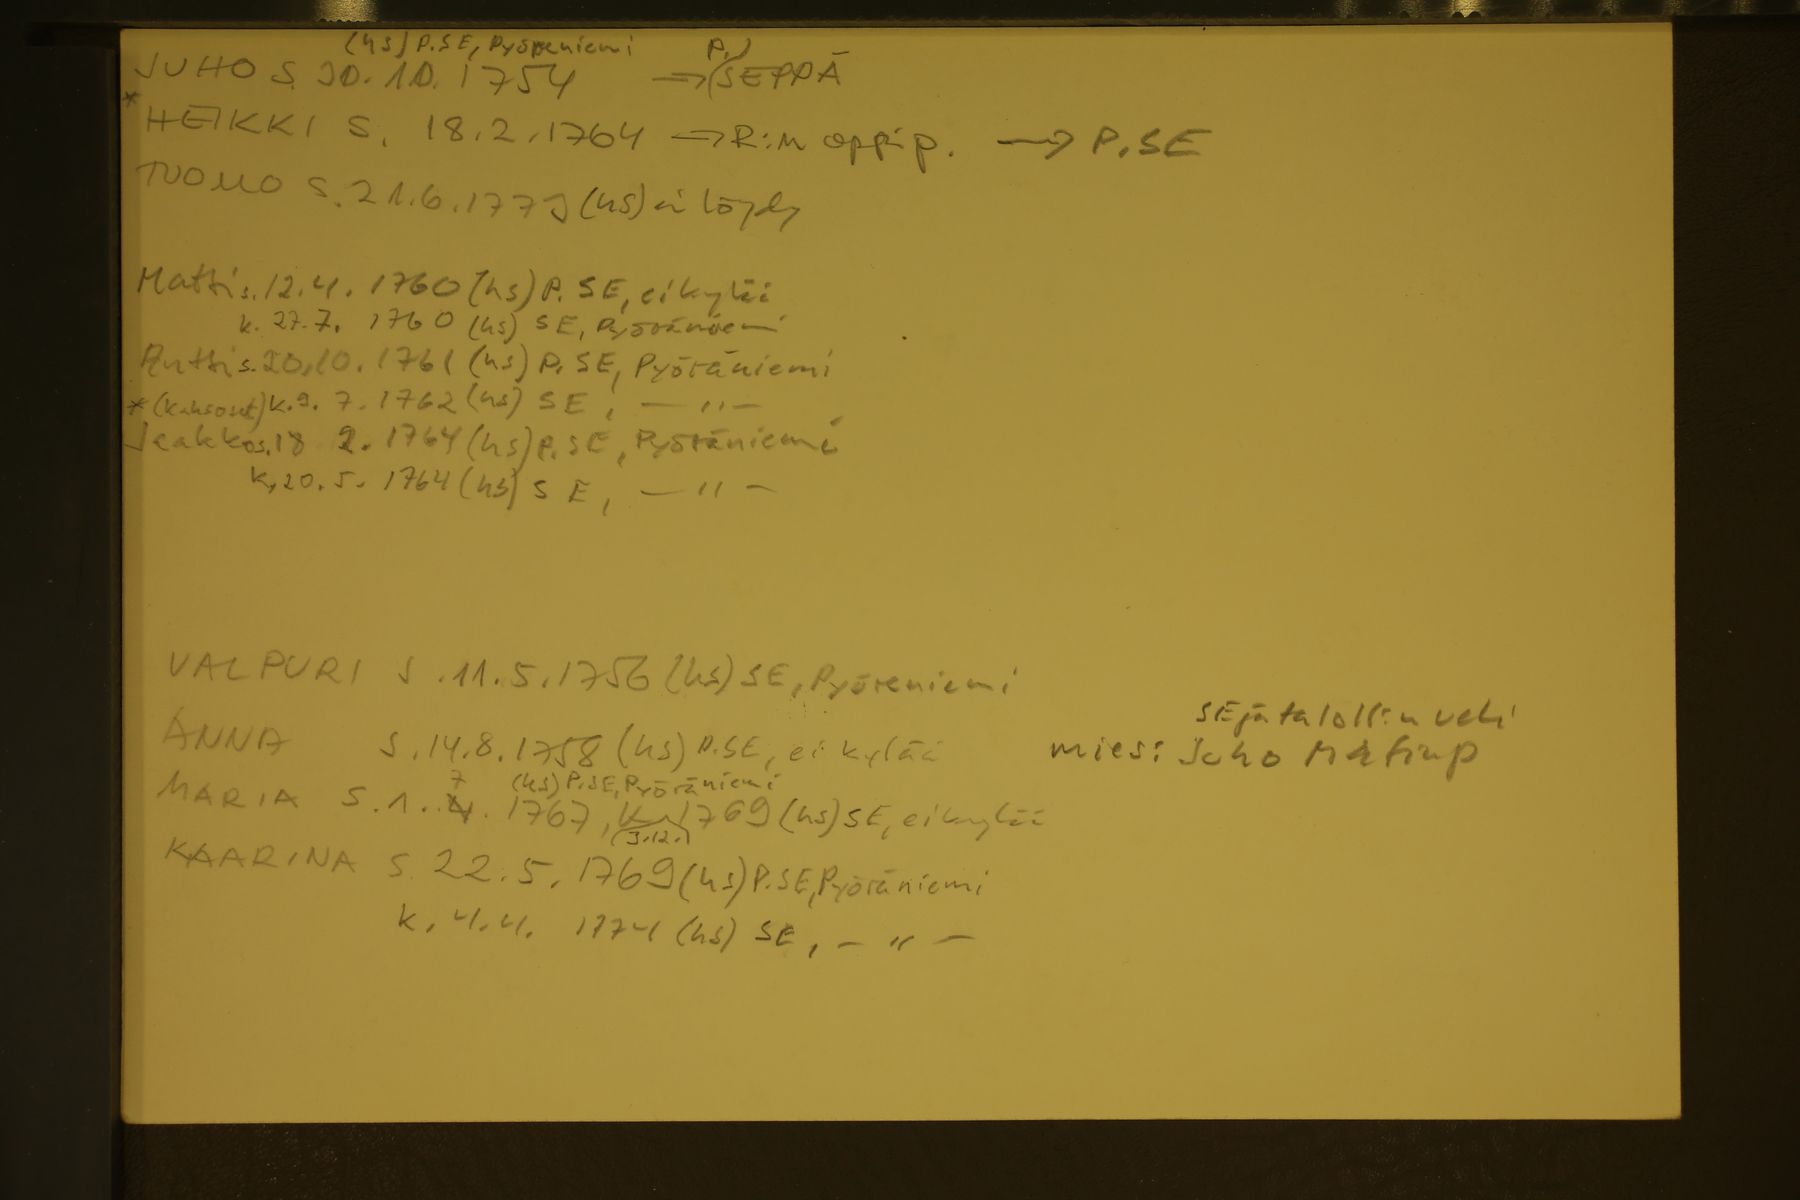 (hs) P.SE, Pyöreniemi P.)
JUHO S. 30.10.1754 → (SEPPÄ
* HEIKKI S. 18.2.1764 → R:n oppip. → P.SE
TUOMO S. 21.6.1773 (hs) ei löydy
Matti s. 12.4. 1760 (hs) P. SE, ei kylää
k. 27.7. 1760 (hs) SE, Pyöräniemi
Antti s. 20.10. 1761 (hs) P. SE, Pyöräniemi
* (kaksoset) k. 9. 7. 1762 (hs) SE, — " —
Jaakko s. 18 2. 1764 (hs) P. SE, Pyöräniemi
k. 20. 5. 1764 (hs) SE, — " —
VALPURI S. 11.5.1756 (hs) SE, Pyöreniemi
SEjä taloll:n veli
ANNA S. 14.8.1758 (hs) P.SE, ei kylää mies: Juho Matinp
7 (hs) P.SE, Pyöräniemi
MARIA S. 1.4. 1767, k. 1769 (hs) SE, ei kylää
(3.12.)
KAARINA S. 22.5. 1769 (hs) P.SE, Pyöräniemi
k. 4.4. 1774 (hs) SE, — " —